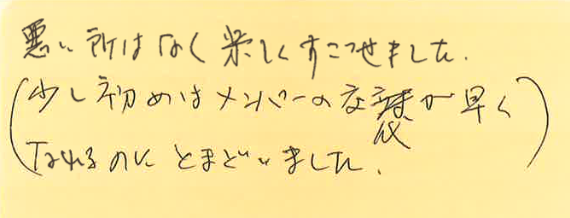 悪い所はなく楽しくすごせました.
(少し初めはメンバーの交代が早く
なれるのに とまどいました.)